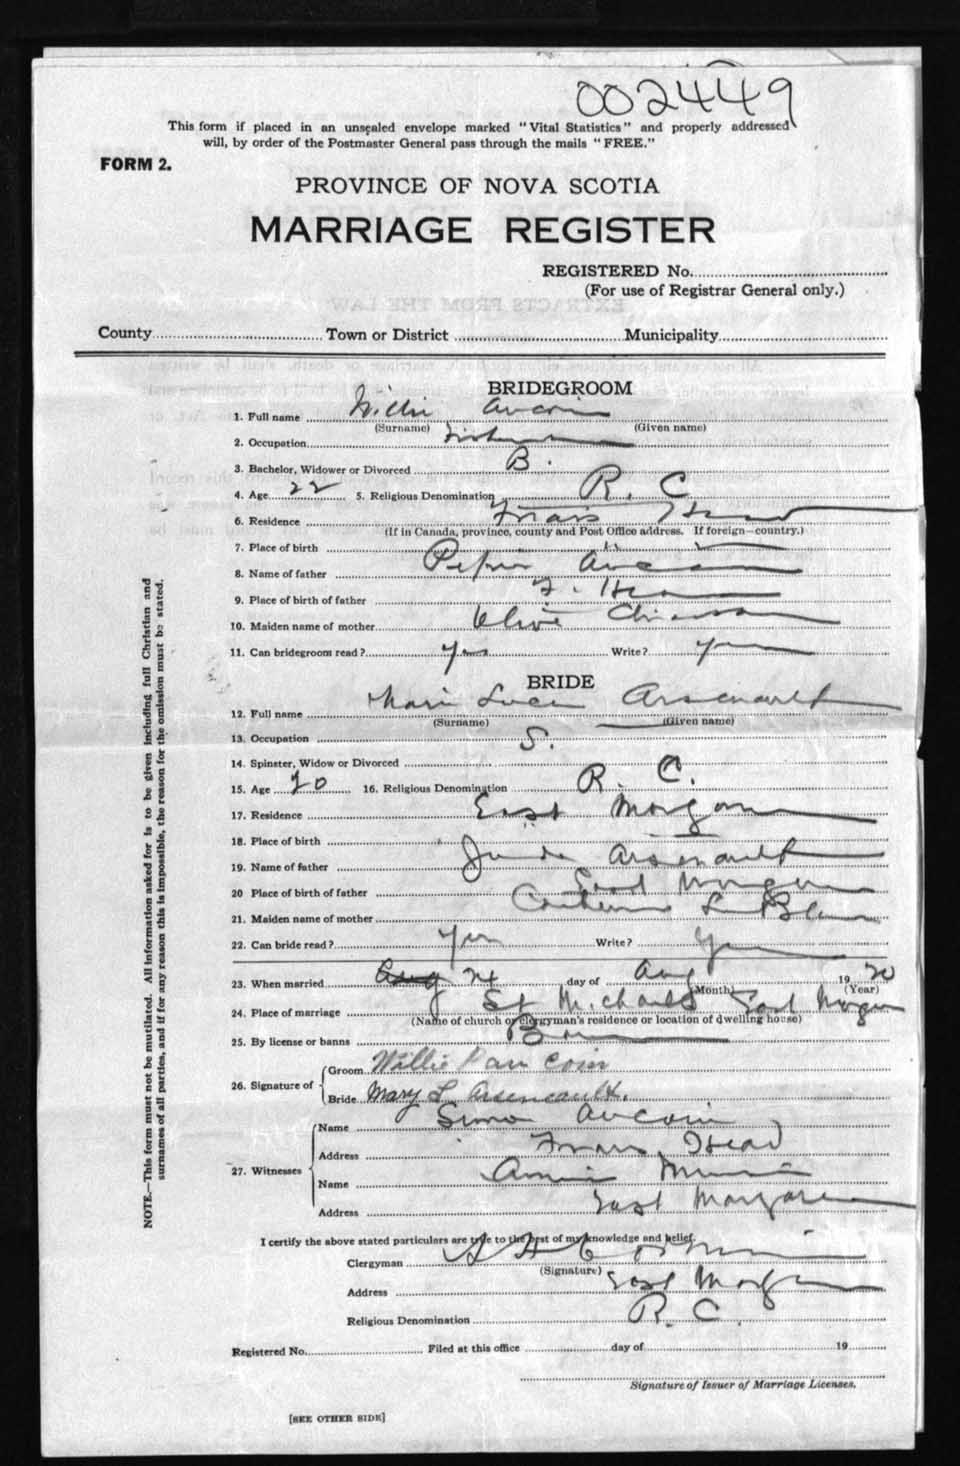 002449
This form if placed in an unsealed envelope marked "Vital Statistics" and properly addressed
will, by order of the Postmaster General pass through the mails "FREE."
FORM 2.
PROVINCE OF NOVA SCOTIA
MARRIAGE REGISTER
REGISTERED No.
(For use of Registrar General only.)
County Town or District Municipality
BRIDEGROOM
1. Full name Willie Aucoin
(Surname) (Given name)
2. Occupation Fisherman
3. Bachelor, Widower or Divorced B.
4. Age 22 5. Religious Denomination R. C
6. Residence Friars Head
(If in Canada, province, county and Post Office address. If foreign—country.)
7. Place of birth "
8. Name of father Aucoin
9. Place of birth of father F. Head
10. Maiden name of mother Olive Chiasson
11. Can bridegroom read? Yes Write? Yes
BRIDE
12. Full name Arsenault
(Surname) (Given name)
13. Occupation
14. Spinster, Widow or Divorced S.
15. Age 20 16. Religious Denomination R. C.
17. Residence East Margaree
18. Place of birth "
19. Name of father Jude Arsenault
20 Place of birth of father East Margaree
21. Maiden name of mother Catherine LeBlanc
22. Can bride read? Yes Write? Yes
23. When married 24 day of Aug 1920
(Month) (Year)
24. Place of marriage St Michaels East Margaree
(Name of church or clergyman's residence or location of dwelling house)
25. By license or banns
26. Signature of Groom Willie P aucoin
Bride Mary L Arseneault.
27. Witnesses Name Simon Aucoin
Address Friars Head
Name
Address East Margaree
I certify the above stated particulars are true to the best of my knowledge and belief.
Clergyman
(Signature)
Address East Margaree
Religious Denomination R. C.
Registered No. Filed at this office day of 19
Signature of Issuer of Marriage Licenses.
[SEE OTHER SIDE]
NOTE.—This form must not be mutilated. All information asked for is to be given including full Christian and
surnames of all parties, and if for any reason this is impossible, the reason for the omission must be stated.